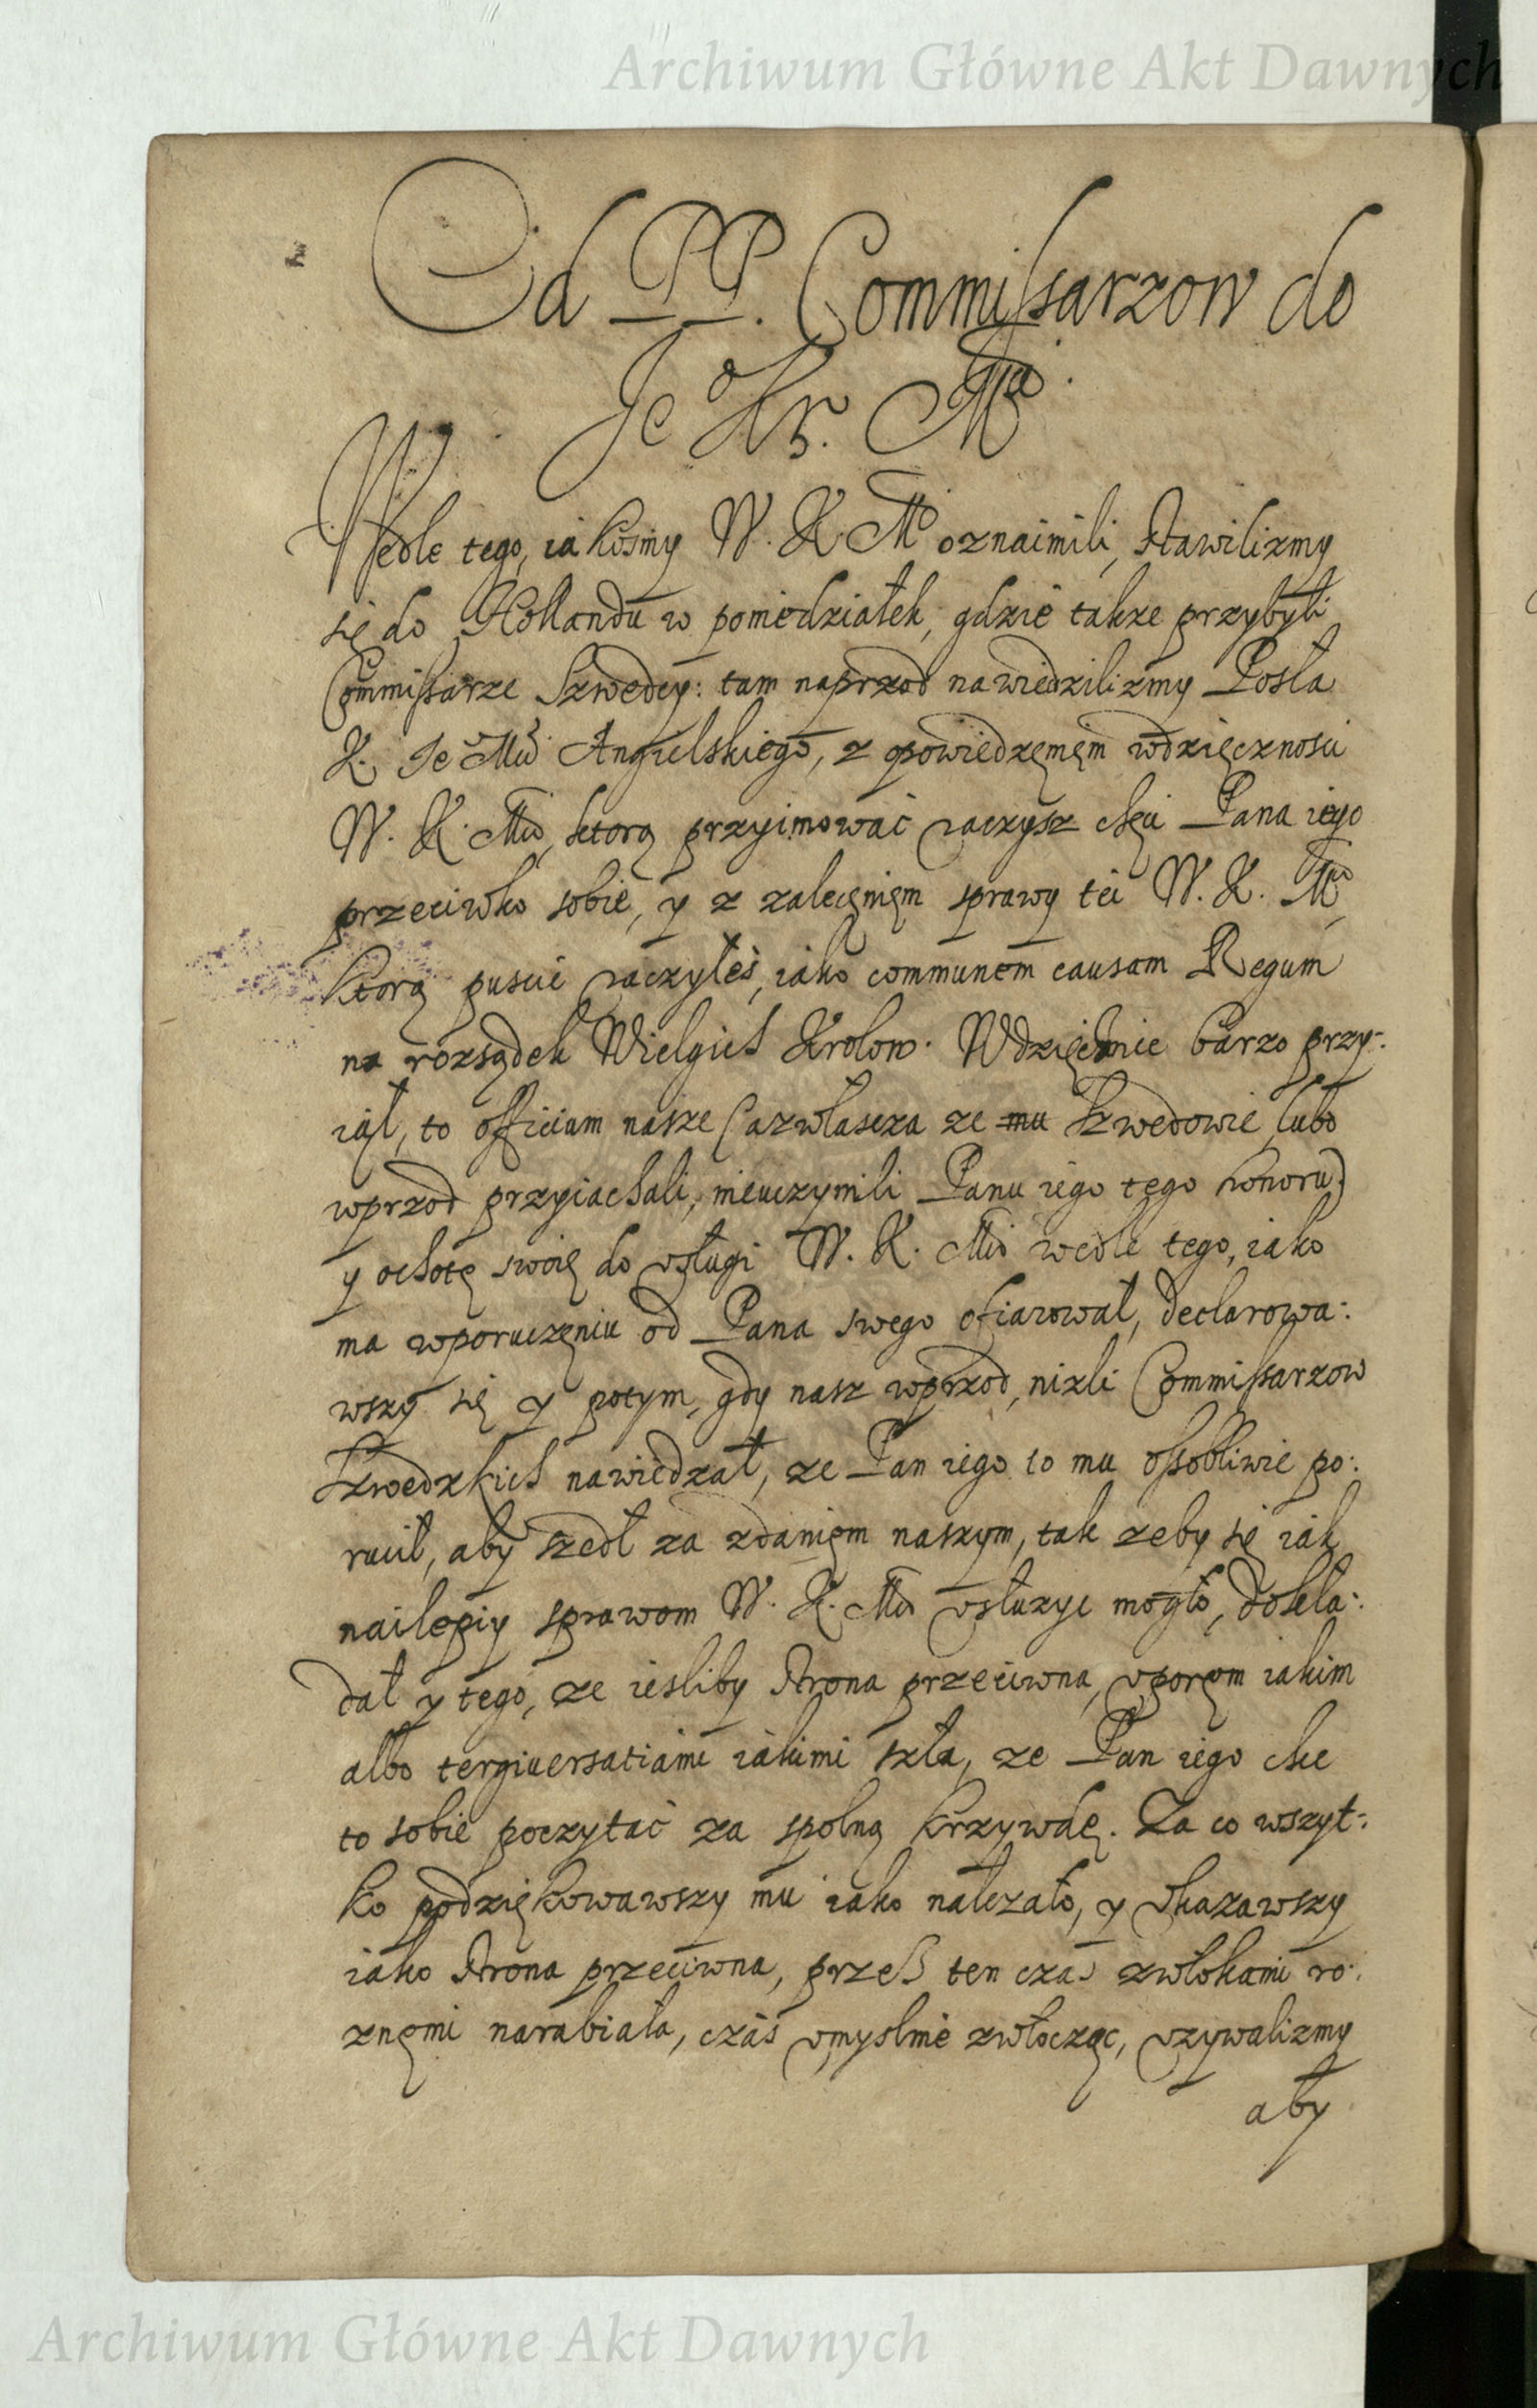 Archiwum Główne Akt Dawnych
Od PP. Commissarzow do
Je° Kr. Mci.
Wedle tego, iakosmy W. K. Mci oznaimili, stawilizmy
się do Hollandu w poniedziałek, gdzie takze przybyli
Commissarze Szwedcy: tam naprzod nawiedzilizmy Posła
K. Je° Mci Angielskiego, z opowiedzęnięm wdzięcznosci
W. K. Mci, ktorą przyimować raczysz chęci Pana iego
przeciwko sobie, y z zalecęnięm sprawy tei W. K. Mci
ktorą puscić raczyłeś, iako communem causam Regum
na rozsądek Wielgich Krolow. Wdzięcznie barzo przy:
iął, to officium nasze (azwłascza ze mu Szwedowie lubo
wprzod przyiachali, nieuczynili Panu iego tego honoru)
y ochotę swoię do vsługi W. K. Mci wedle tego, iako
ma wporuczęniu od Pana swego ofiarował, declarowa:
wszy się y potym, gdy nasz wprzod, nizli Commissarzow
Szwedzkich nawiedzał, ze Pan iego to mu ossobliwie po:
rucił, aby szedł za zdanięm naszym, tak zeby się iak
nailepiy sprawom W. K. Mci vsłuzyc mogło, dokła:
dał y tego, ze iesliby strona przeciwna, vporęm iakim
albo tergiuersatiami iakimi szła, ze Pan iego chce
to sobie poczytać za spolną krzywdę. Za co wszyt:
ko podziękowawszy mu iako nalezało, y vkazawszy
iako strona przeciwna, przeß ten czas zwłokami ro:
znęmi narabiała, czas vmyslnie zwłocząc, vzywalizmy
aby
Archiwum Główne Akt Dawnych